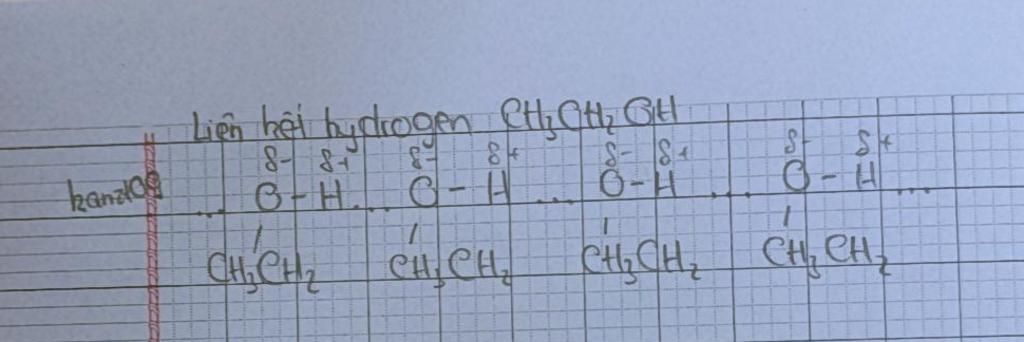 Liên kết hydrogen CH₃CH₂OH
δ- δ+ δ- δ+ δ- δ+ δ- δ+
... O - H ... O - H ... O - H ... O - H ...
CH₃CH₂ CH₃CH₂ CH₃CH₂ CH₃CH₂